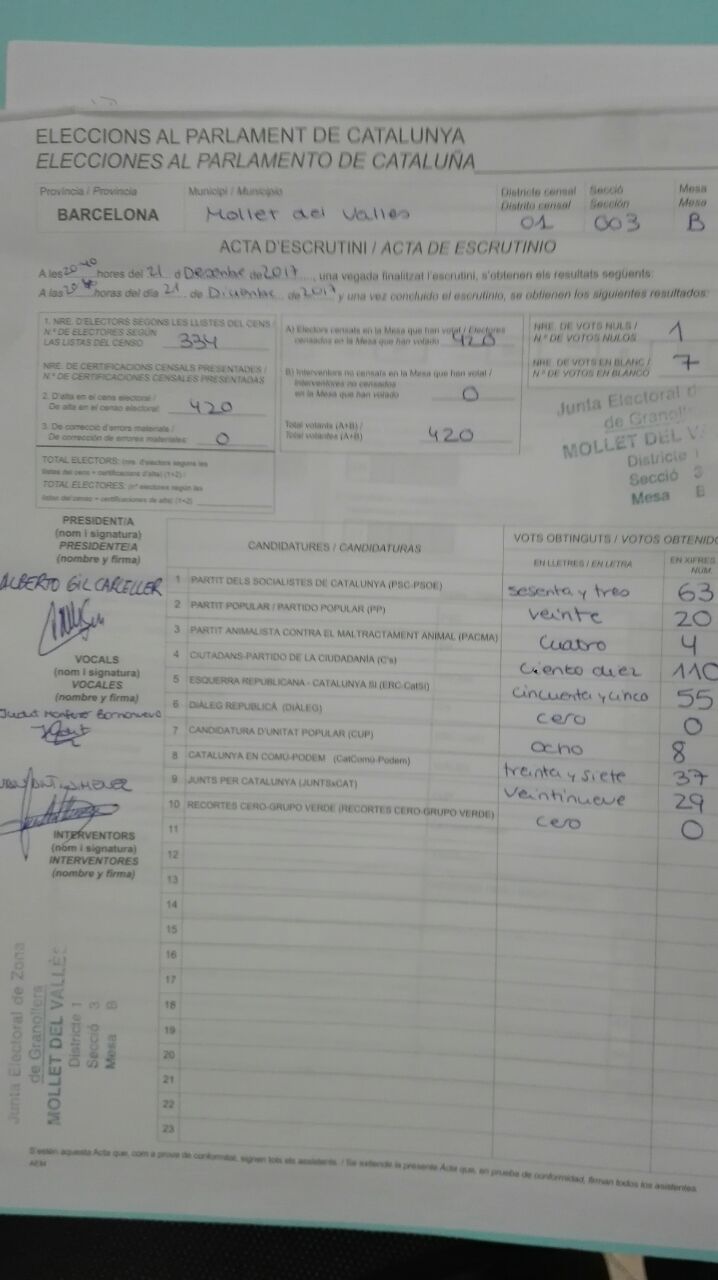 ELECCIONS AL PARLAMENT DE CATALUNYA
ELECCIONES AL PARLAMENTO DE CATALUÑA
Província / Provincia
BARCELONA
Municipi / Municipio
Mollet del Valles
Districte censal
Distrito censal
01
Secció
Sección
003
Mesa
Mesa
B
ACTA D'ESCRUTINI / ACTA DE ESCRUTINIO
A les 20:40 hores del 21 d Desembre de 2017, una vegada finalitzat l'escrutini, s'obtenen els resultats següents:
A las horas del día 21 de Diciembre de 2017 y una vez concluido el escrutinio, se obtienen los siguientes resultados:
1. NRE. D'ELECTORS SEGONS LES LLISTES DEL CENS /
N.º DE ELECTORES SEGÚN
LAS LISTAS DEL CENSO
334
NRE. DE CERTIFICACIONS CENSALS PRESENTADES /
N.º DE CERTIFICACIONES CENSALES PRESENTADAS
2. D'alta en el cens electoral /
De alta en el censo electoral:
420
3. De correcció d'errors materials /
De corrección de errores materiales:
0
TOTAL ELECTORS: (nre. d'electors segons les
llistes del cens + certificacions d'alta) (1+2) /
TOTAL ELECTORES: (nº electores según las
listas del censo + certificaciones de alta) (1+2)
A) Electors censats en la Mesa que han votat / Electores
censados en la Mesa que han votado
420
B) Interventors no censats en la Mesa que han votat /
Interventores no censados
en la Mesa que han votado
0
Total votants (A+B) /
Total votantes (A+B)
420
NRE. DE VOTS NULS /
N.º DE VOTOS NULOS
1
NRE. DE VOTS EN BLANC /
N.º DE VOTOS EN BLANCO
7
Junta Electoral d
de Granoll
MOLLET DEL V
Districte 1
Secció 3
Mesa B
PRESIDENT/A
(nom i signatura)
PRESIDENTE/A
(nombre y firma)
ALBERTO GIL
VOCALS
(nom i signatura)
VOCALES
(nombre y firma)
INTERVENTORS
(nom i signatura)
INTERVENTORES
(nombre y firma)
CANDIDATURES / CANDIDATURAS
VOTS OBTINGUTS / VOTOS OBTENIDO
EN LLETRES / EN LETRA
EN XIFRES
NÚM.
1 PARTIT DELS SOCIALISTES DE CATALUNYA (PSC-PSOE) sesenta y tres 63
2 PARTIT POPULAR / PARTIDO POPULAR (PP) veinte 20
3 PARTIT ANIMALISTA CONTRA EL MALTRACTAMENT ANIMAL (PACMA) cuatro 4
4 CIUTADANS-PARTIDO DE LA CIUDADANÍA (C's) ciento diez 110
5 ESQUERRA REPUBLICANA - CATALUNYA SÍ (ERC-CatSí) cincuenta y cinco 55
6 DIÀLEG REPUBLICÀ (DIÀLEG) cero 0
7 CANDIDATURA D'UNITAT POPULAR (CUP) ocho 8
8 CATALUNYA EN COMÚ-PODEM (CatComú-Podem) treinta y siete 37
9 JUNTS PER CATALUNYA (JUNTSxCAT) veintinueve 29
10 RECORTES CERO-GRUPO VERDE (RECORTES CERO-GRUPO VERDE) cero 0
11
12
13
14
15
16
17
18
19
20
21
22
23
Junta Electoral de Zona
de Granollers
MOLLET DEL VALLÈS
Districte 1
Secció 3
Mesa B
S'estén aquesta Acta que, com a prova de conformitat, signen tots els assistents. / Se extiende la presente Acta que, en prueba de conformidad, firman todos los asistentes.
AEM